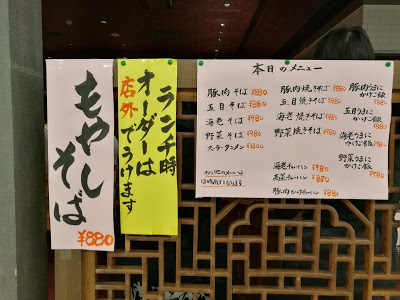 もやしそば
¥880
ランチ時
オーダーは
店外
でうけます
本日のメニュー
豚肉そば ¥880
五目そば ¥880
海老そば ¥980
野菜そば ¥880
スーラータンメン ¥900
豚肉焼きそば ¥880
五目焼きそば ¥880
海老焼そば ¥980
野菜焼きそば ¥880
海老チャーハン ¥980
高菜チャーハン ¥880
豚肉かけチャーハン ¥880
豚肉うまに
かけご飯
¥880
五目うまに
かけご飯
¥880
海老うまに
かけご飯 ¥980
野菜うまに
かけご飯
¥880